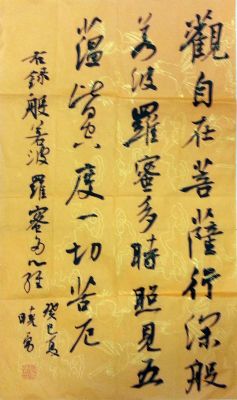 觀自在菩薩行深般
若波羅蜜多時照見五
蘊皆空度一切苦厄
右錄般若波羅蜜多心經
癸巳夏
曉勇